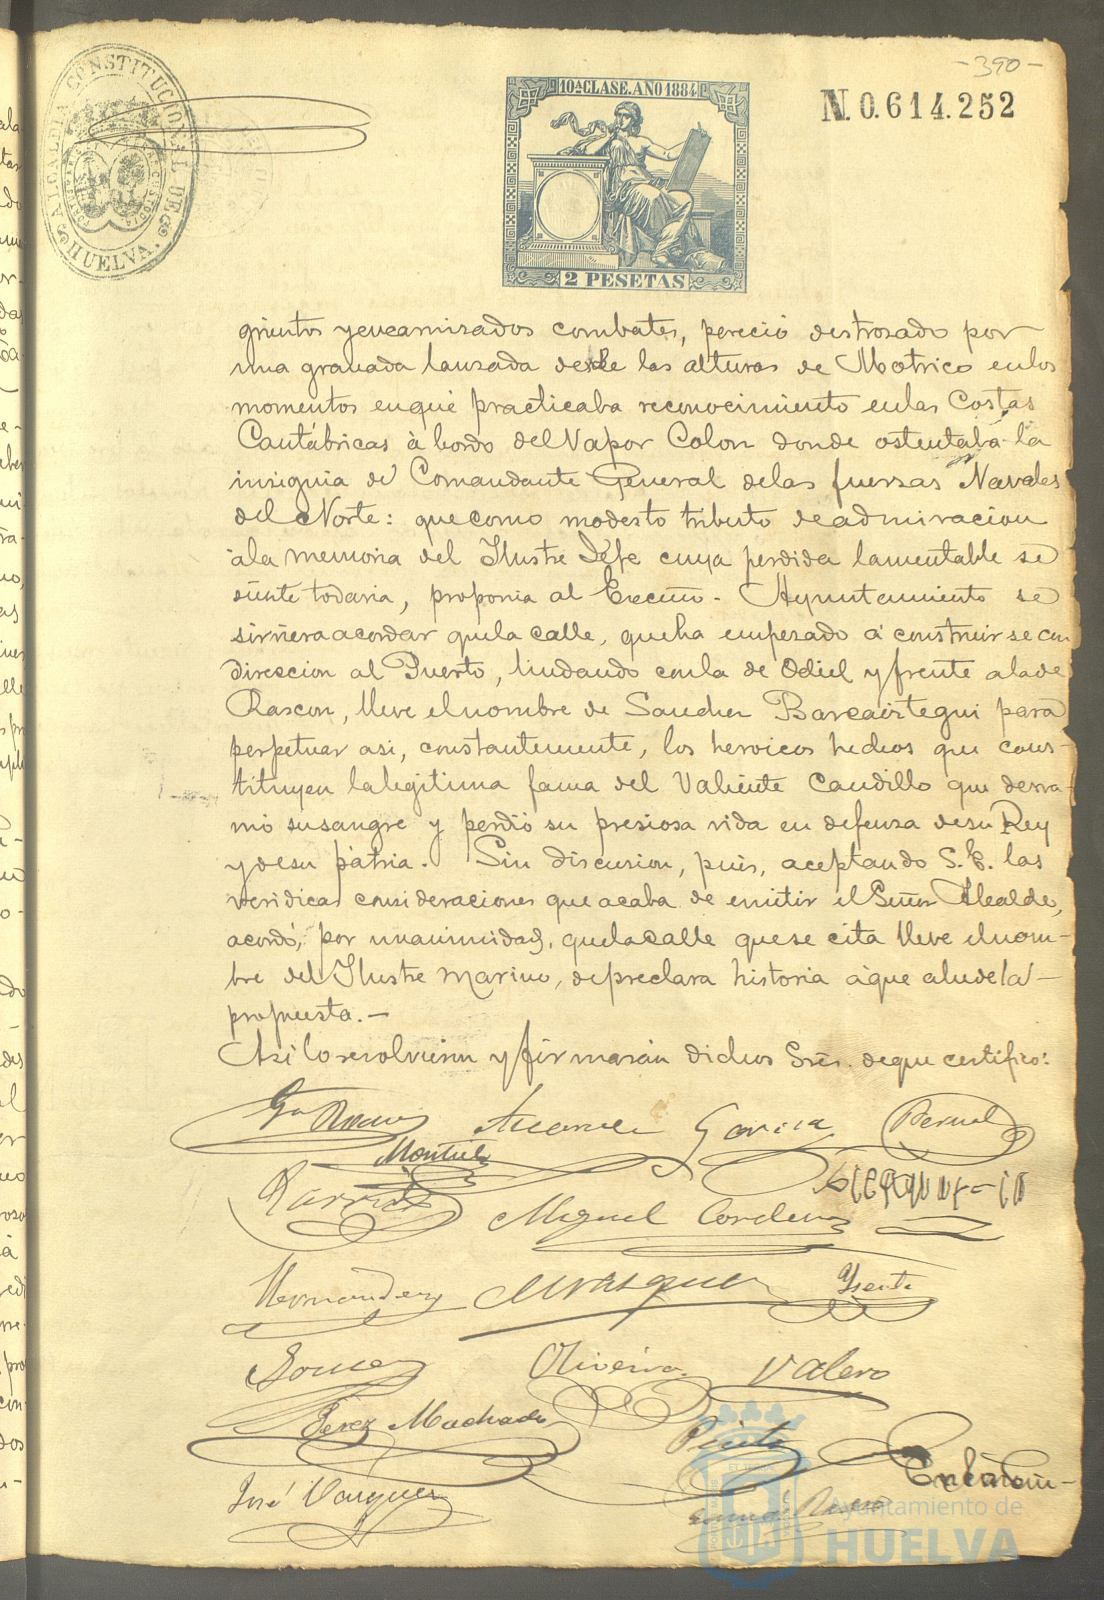 -390-
ALCALDIA CONSTITUCIONAL DE
HUELVA.
10ª CLASE. AÑO 1884
N.0.614.252
2 PESETAS
grientos y encarnizados combates, pereció destrosado por
una granada lanzada desde las alturas de Motrico en los
momentos en qué practicaba reconocimiento en las Costas
Cantábricas à bordo del Vapor Colon donde ostentaba la
insignia de Comandante General de las fuersas Navales
del Norte: que como modesto tributo de admiracion
à la memoria del Ilustre Jefe cuya perdida lamentable se
siente todavia, proponia al Excmo. Ayuntamiento se
sirviera acordar que la calle, que ha empesado á construirse con
direccion al Puerto, lindando con la de Odiel y frente a la de
Rascon, lleve el nombre de Sanchez Barcaiztegui para
perpetuar asi, constantemente, los heroicos hechos que cons-
tituyen la legitima fama del Valiente Caudillo que derra-
mó su sangre y perdió su presiosa vida en defensa de su Rey
y de su pátria. Sin discusion, pues, aceptando S.E. las
veridicas consideraciones que acaba de emitir el Señor Alcalde,
acordó, por unanimidad, que la calle que se cita lleve el nom-
bre del Ilustre Marino, de preclara historia à que alude la
propuesta.-
Asi lo resolvieron y firmarán dichos Sres. de que certifico:
Garcia Bernal
Montiel
Miguel Cordero
Hernandez M Vasquez
Oliveira Valero
Perez Machado Pinto
José Vázquez
Ayuntamiento de
HUELVA